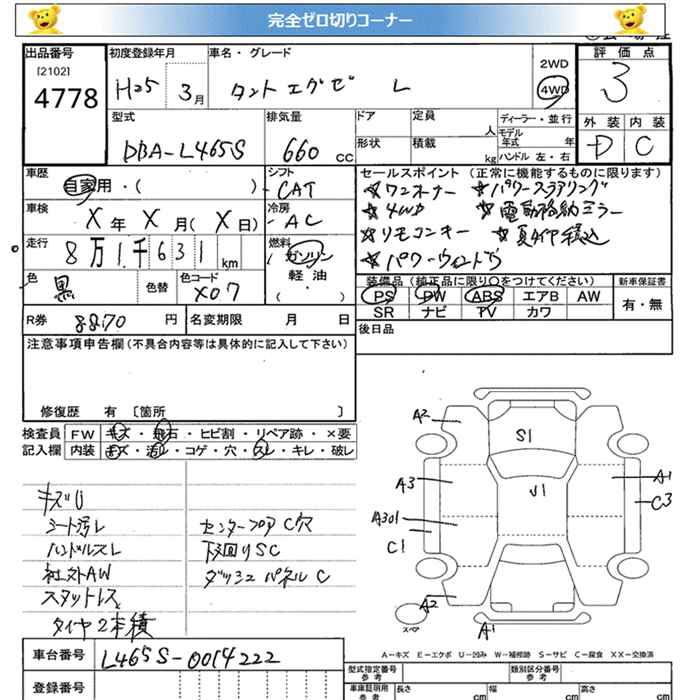 完全ゼロ切りコーナー
出品番号
[2102]
4778
初度登録年月
H25 3月
車名・グレード
タント エグゼ L
2WD
4WD
評価点
3
外装 内装
D C
型式
DBA-L465S
排気量
660 cc
ドア
形状
定員
人
積載
kg
ディーラー・並行
モデル
年式 年
ハンドル 左・右
車歴
自家用・( )
シフト
CAT
車検
X年 X月(X日)
冷房
AC
走行
8万1千631km
燃料
ガソリン
軽油
( )
色
黒
色替
色コード
X07
セールスポイント (正常に機能するものに限ります)
☆ワンオーナー ☆パワーステアリング
☆4WD ☆電動格納ミラー
☆リモコンキー ☆夏タイヤ積込
☆パワーウィンドウ
装備品(純正品に限り○をつけてください)
PS PW ABS エアB AW
SR ナビ TV カワ
新車保証書
有・無
R券 8870 円
名変期限 月 日
後日品
注意事項申告欄(不具合内容等は具体的に記入して下さい)
修復歴 有 〔箇所 〕
検査員
記入欄
FW キズ・飛石・ヒビ割・リペア跡・×要
内装 キズ・汚レ・コゲ・穴・スレ・キレ・破レ
キズU
シート汚レ
ハンドルスレ
社外AW
スタットレス
タイヤ2本積
センターフロアC穴
下廻りSC
ダッシュパネルC
A2
S1
A3
J1
A1
C3
A301
C1
A2
A1
スペア
A-キズ E-エクボ U-凹み W-補修跡 S-サビ C-腐食 XX-交換済
車台番号
L465S-0014222
登録番号
型式指定番号
参考
類別区分番号
参考
車庫証明用
参考
長さ cm
幅 cm
高さ cm